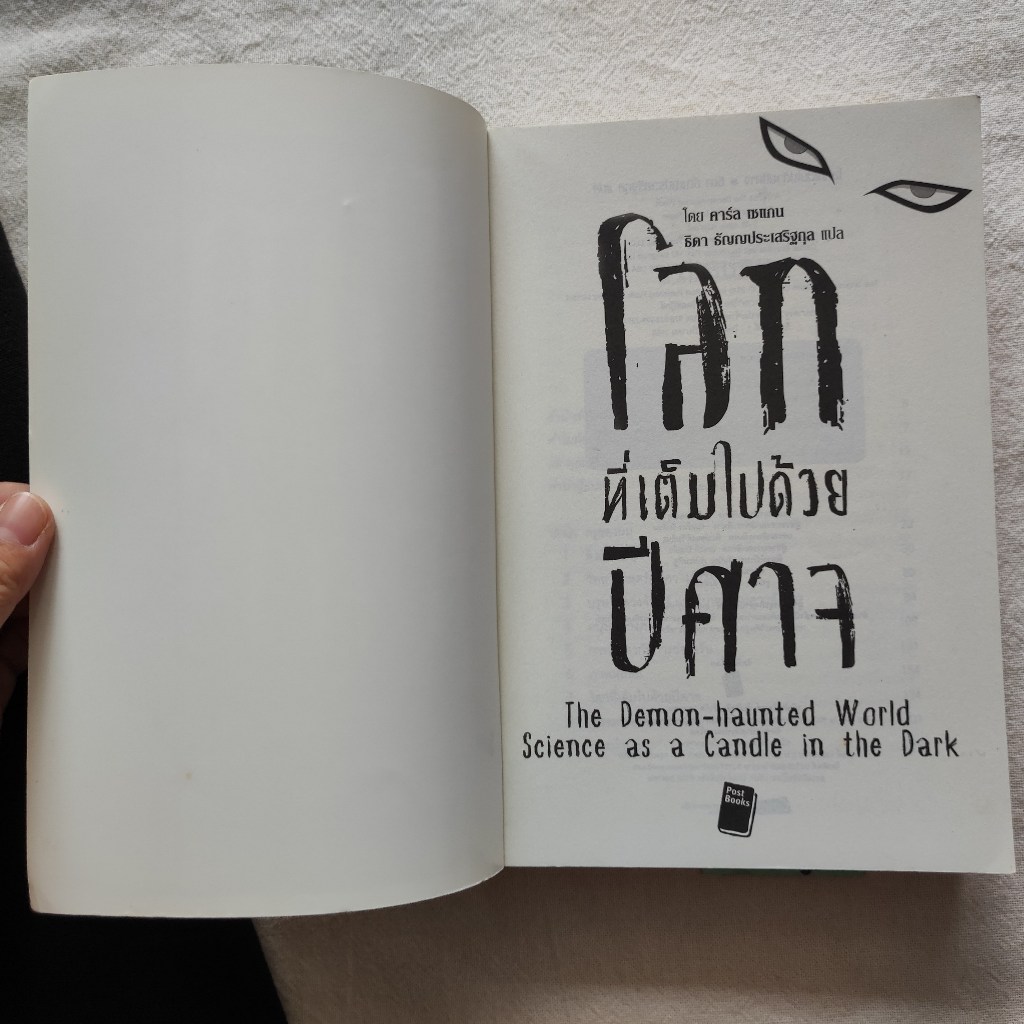 โดย คาร์ล เซแกน
ธิดา ธัญญประเสริฐกุล แปล
โลก
ที่เต็มไปด้วย
ปีศาจ
The Demon-haunted World
Science as a Candle in the Dark
Post
Books